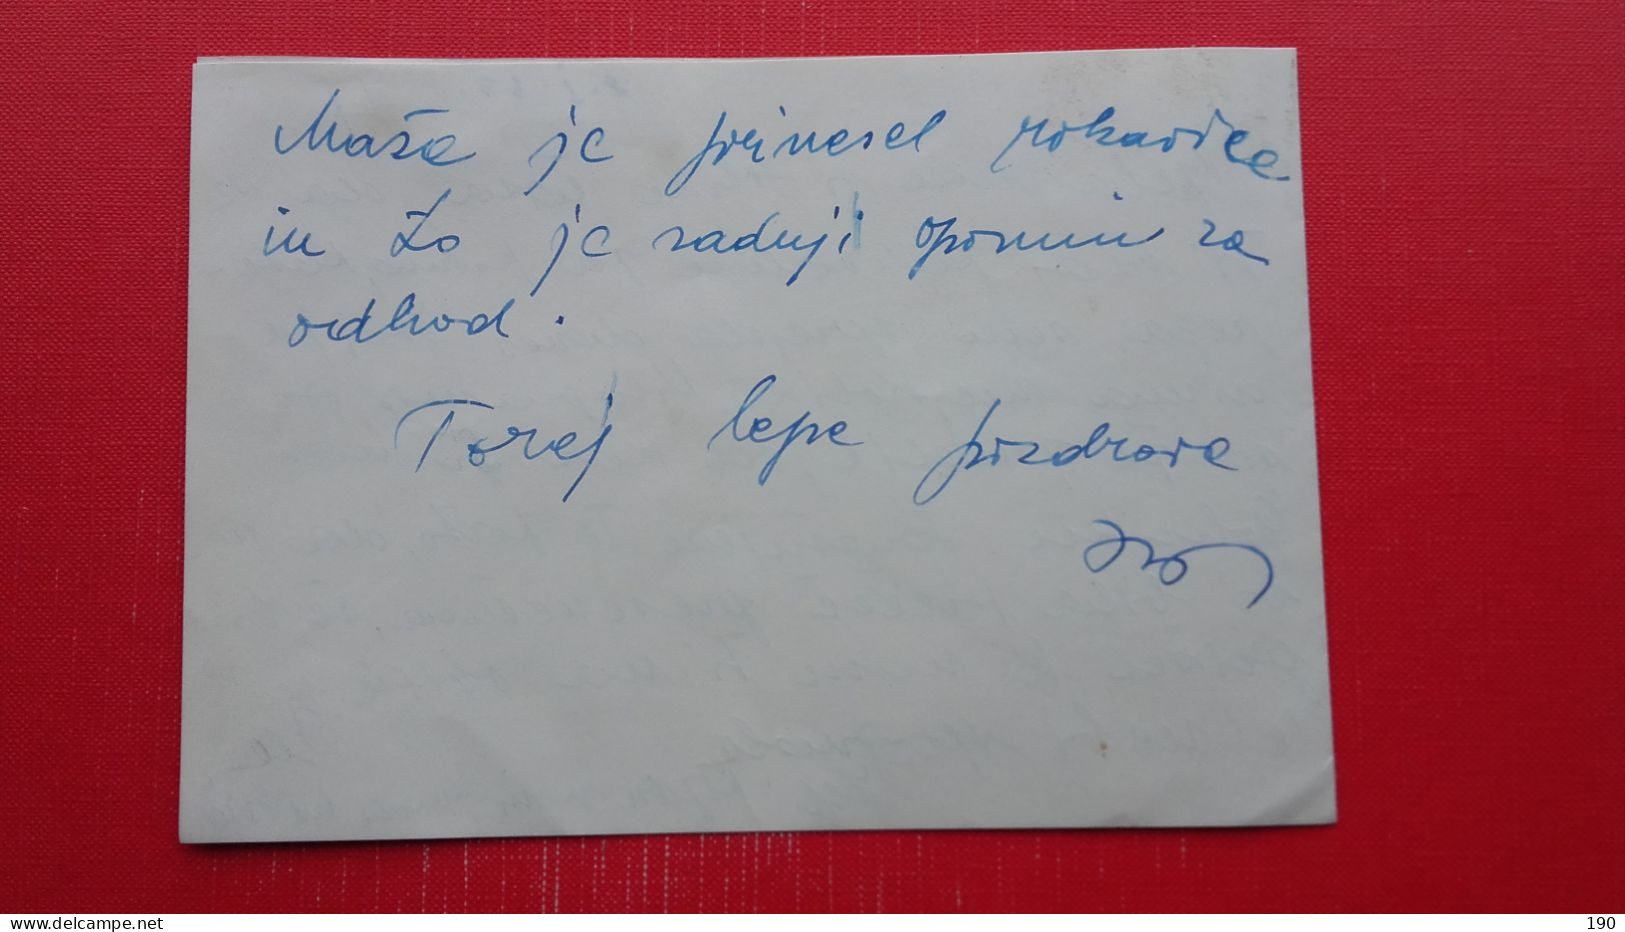 Maše je prinesel rokavice
in to je zadnji opomin za
odhod.
Torej lepe pozdrave
Ivo
www.delcampe.net
190